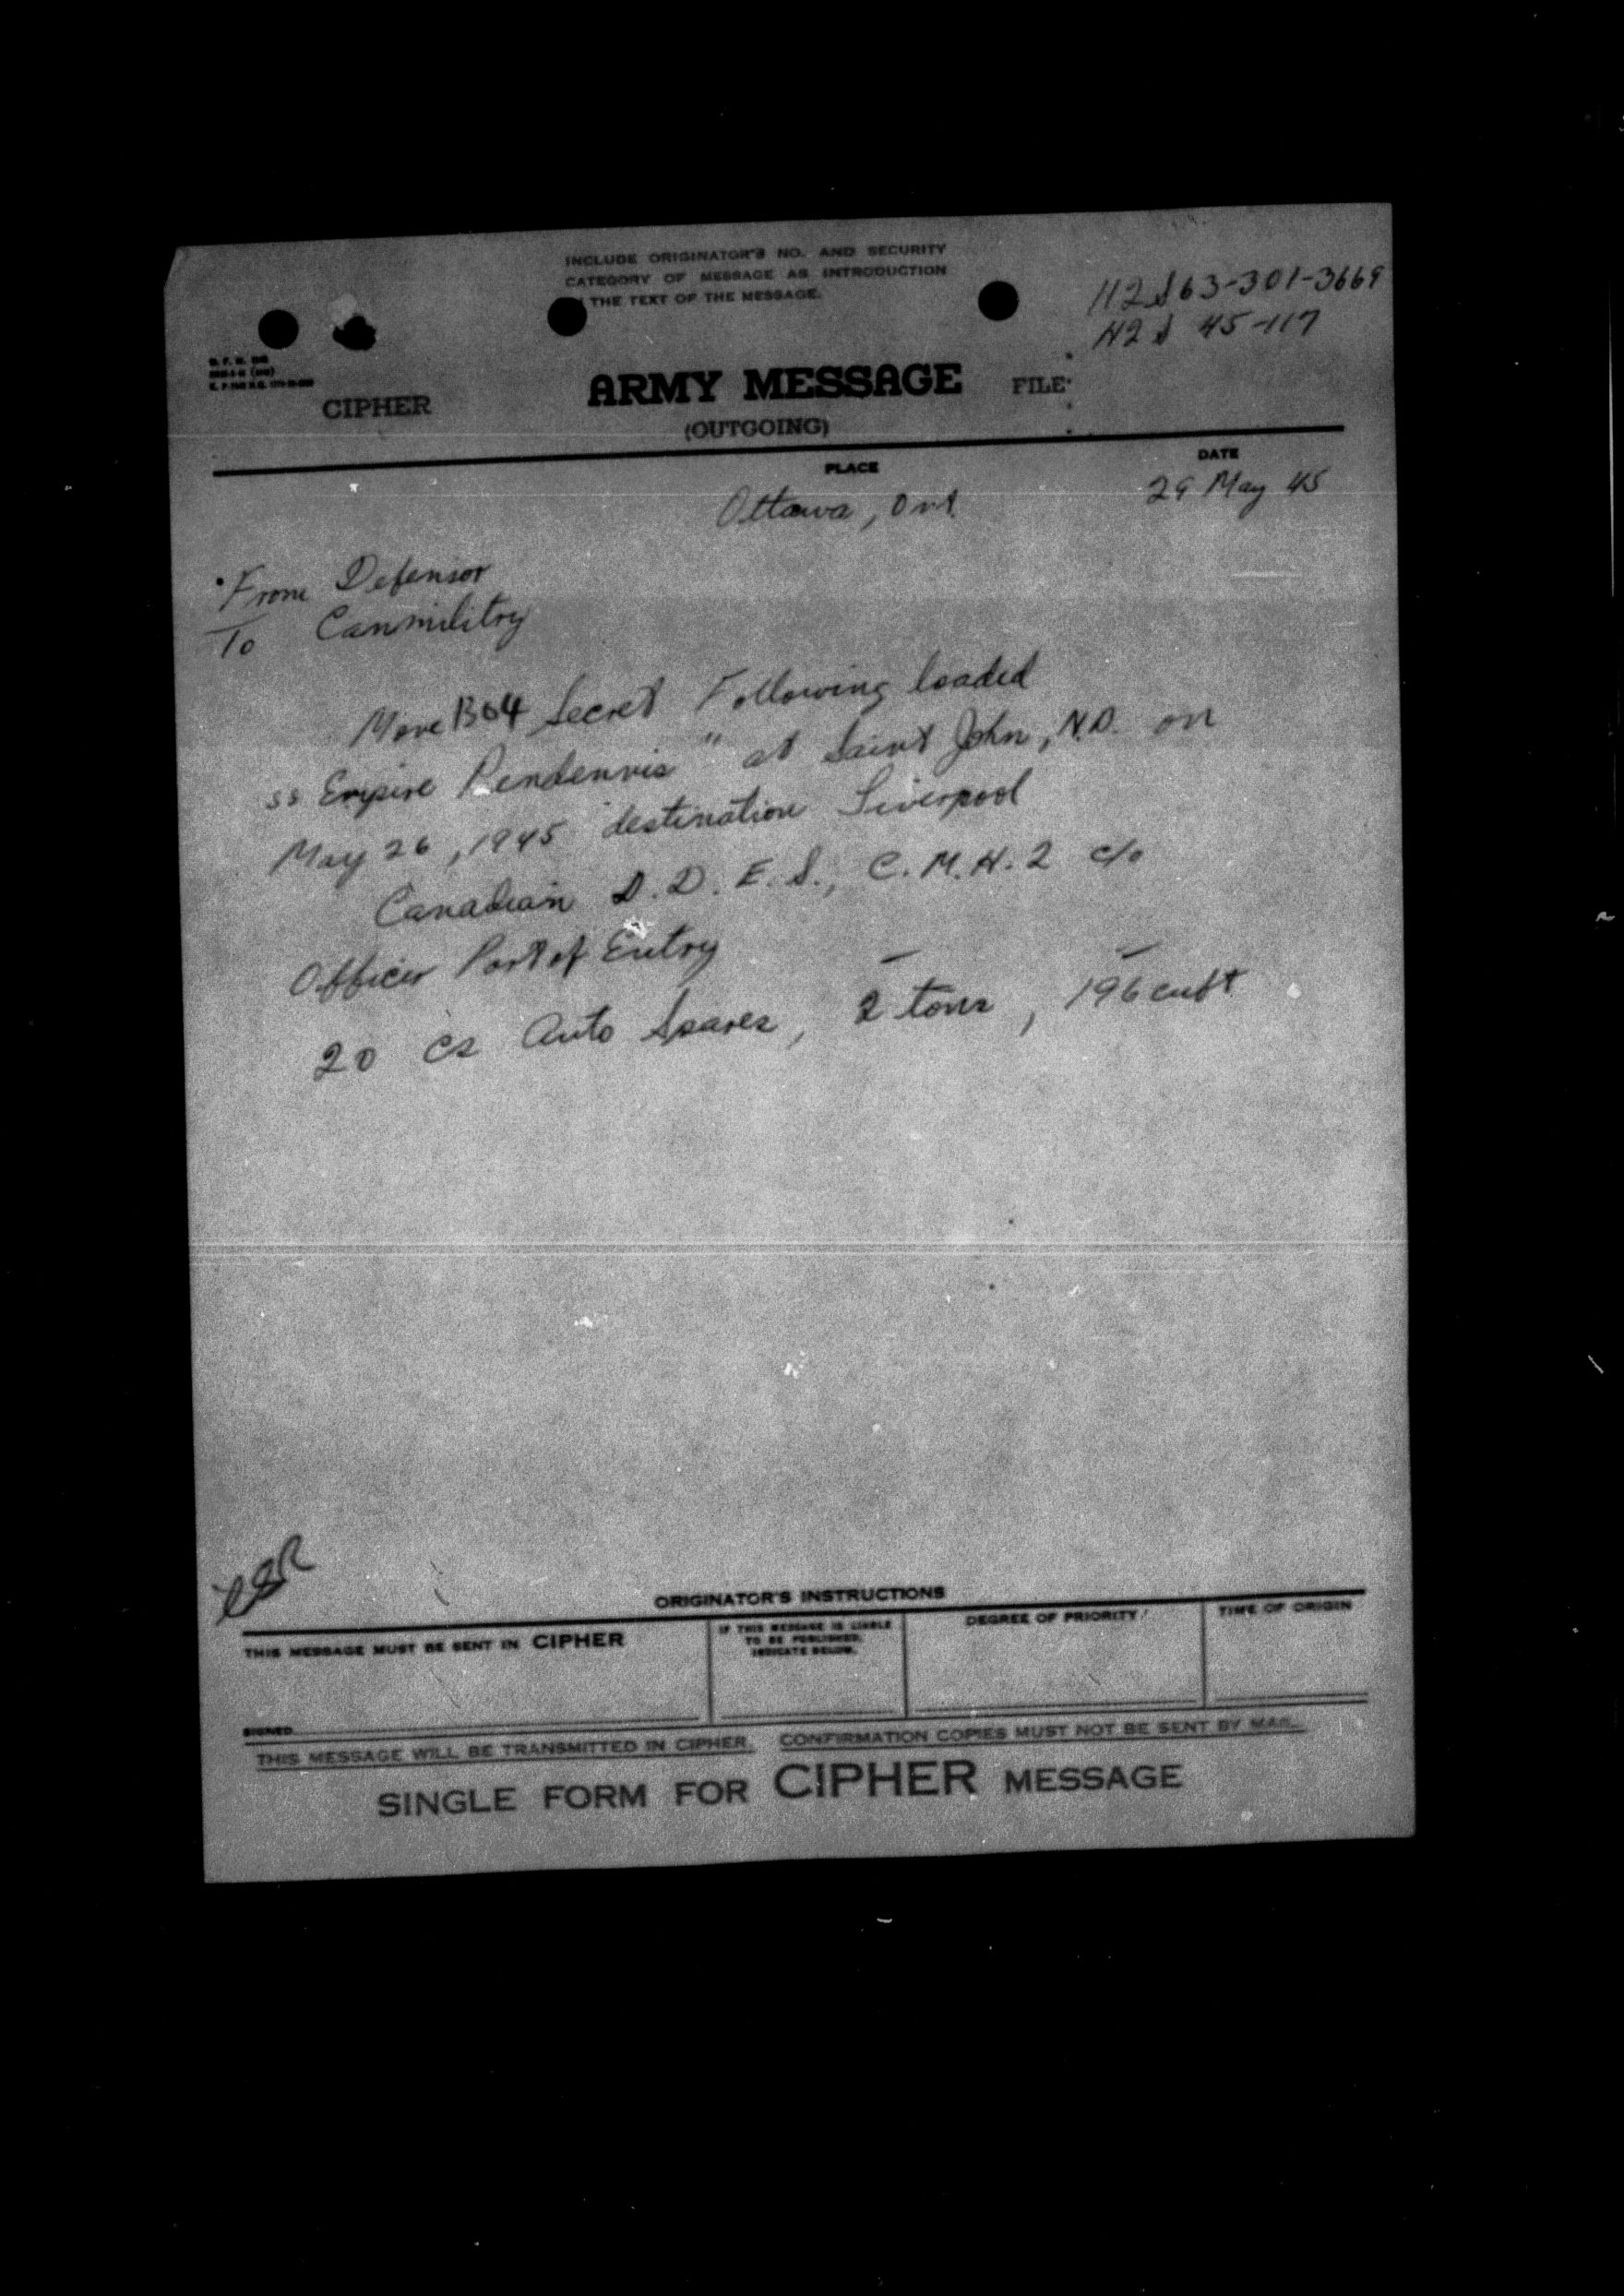 INCLUDE ORIGINATOR'S NO. AND SECURITY
CATEGORY OF MESSAGE AS INTRODUCTION
THE TEXT OF THE MESSAGE.
112 S 63-301-3669
H2 S 45-117
CIPHER
ARMY MESSAGE
FILE
(OUTGOING)
PLACE
DATE
Ottawa, Ont.
29 May 45
From Defensor
To Canmilitry
Move B04 Secret Following loaded
ss Empire Pendennis" at Saint John, N.B. on
May 26, 1945 destination Liverpool
Canadian D.D.E.S., C.M.H.2 c/o
Officer Port of Entry
20 cs Auto Spares, 2 tons, 196 cuft
ORIGINATOR'S INSTRUCTIONS
THIS MESSAGE MUST BE SENT IN CIPHER
IF THIS MESSAGE IS LIABLE
TO BE PUBLISHED,
INDICATE BELOW.
DEGREE OF PRIORITY
TIME OF ORIGIN
SIGNED
THIS MESSAGE WILL BE TRANSMITTED IN CIPHER. CONFIRMATION COPIES MUST NOT BE SENT BY MAIL.
SINGLE FORM FOR CIPHER MESSAGE